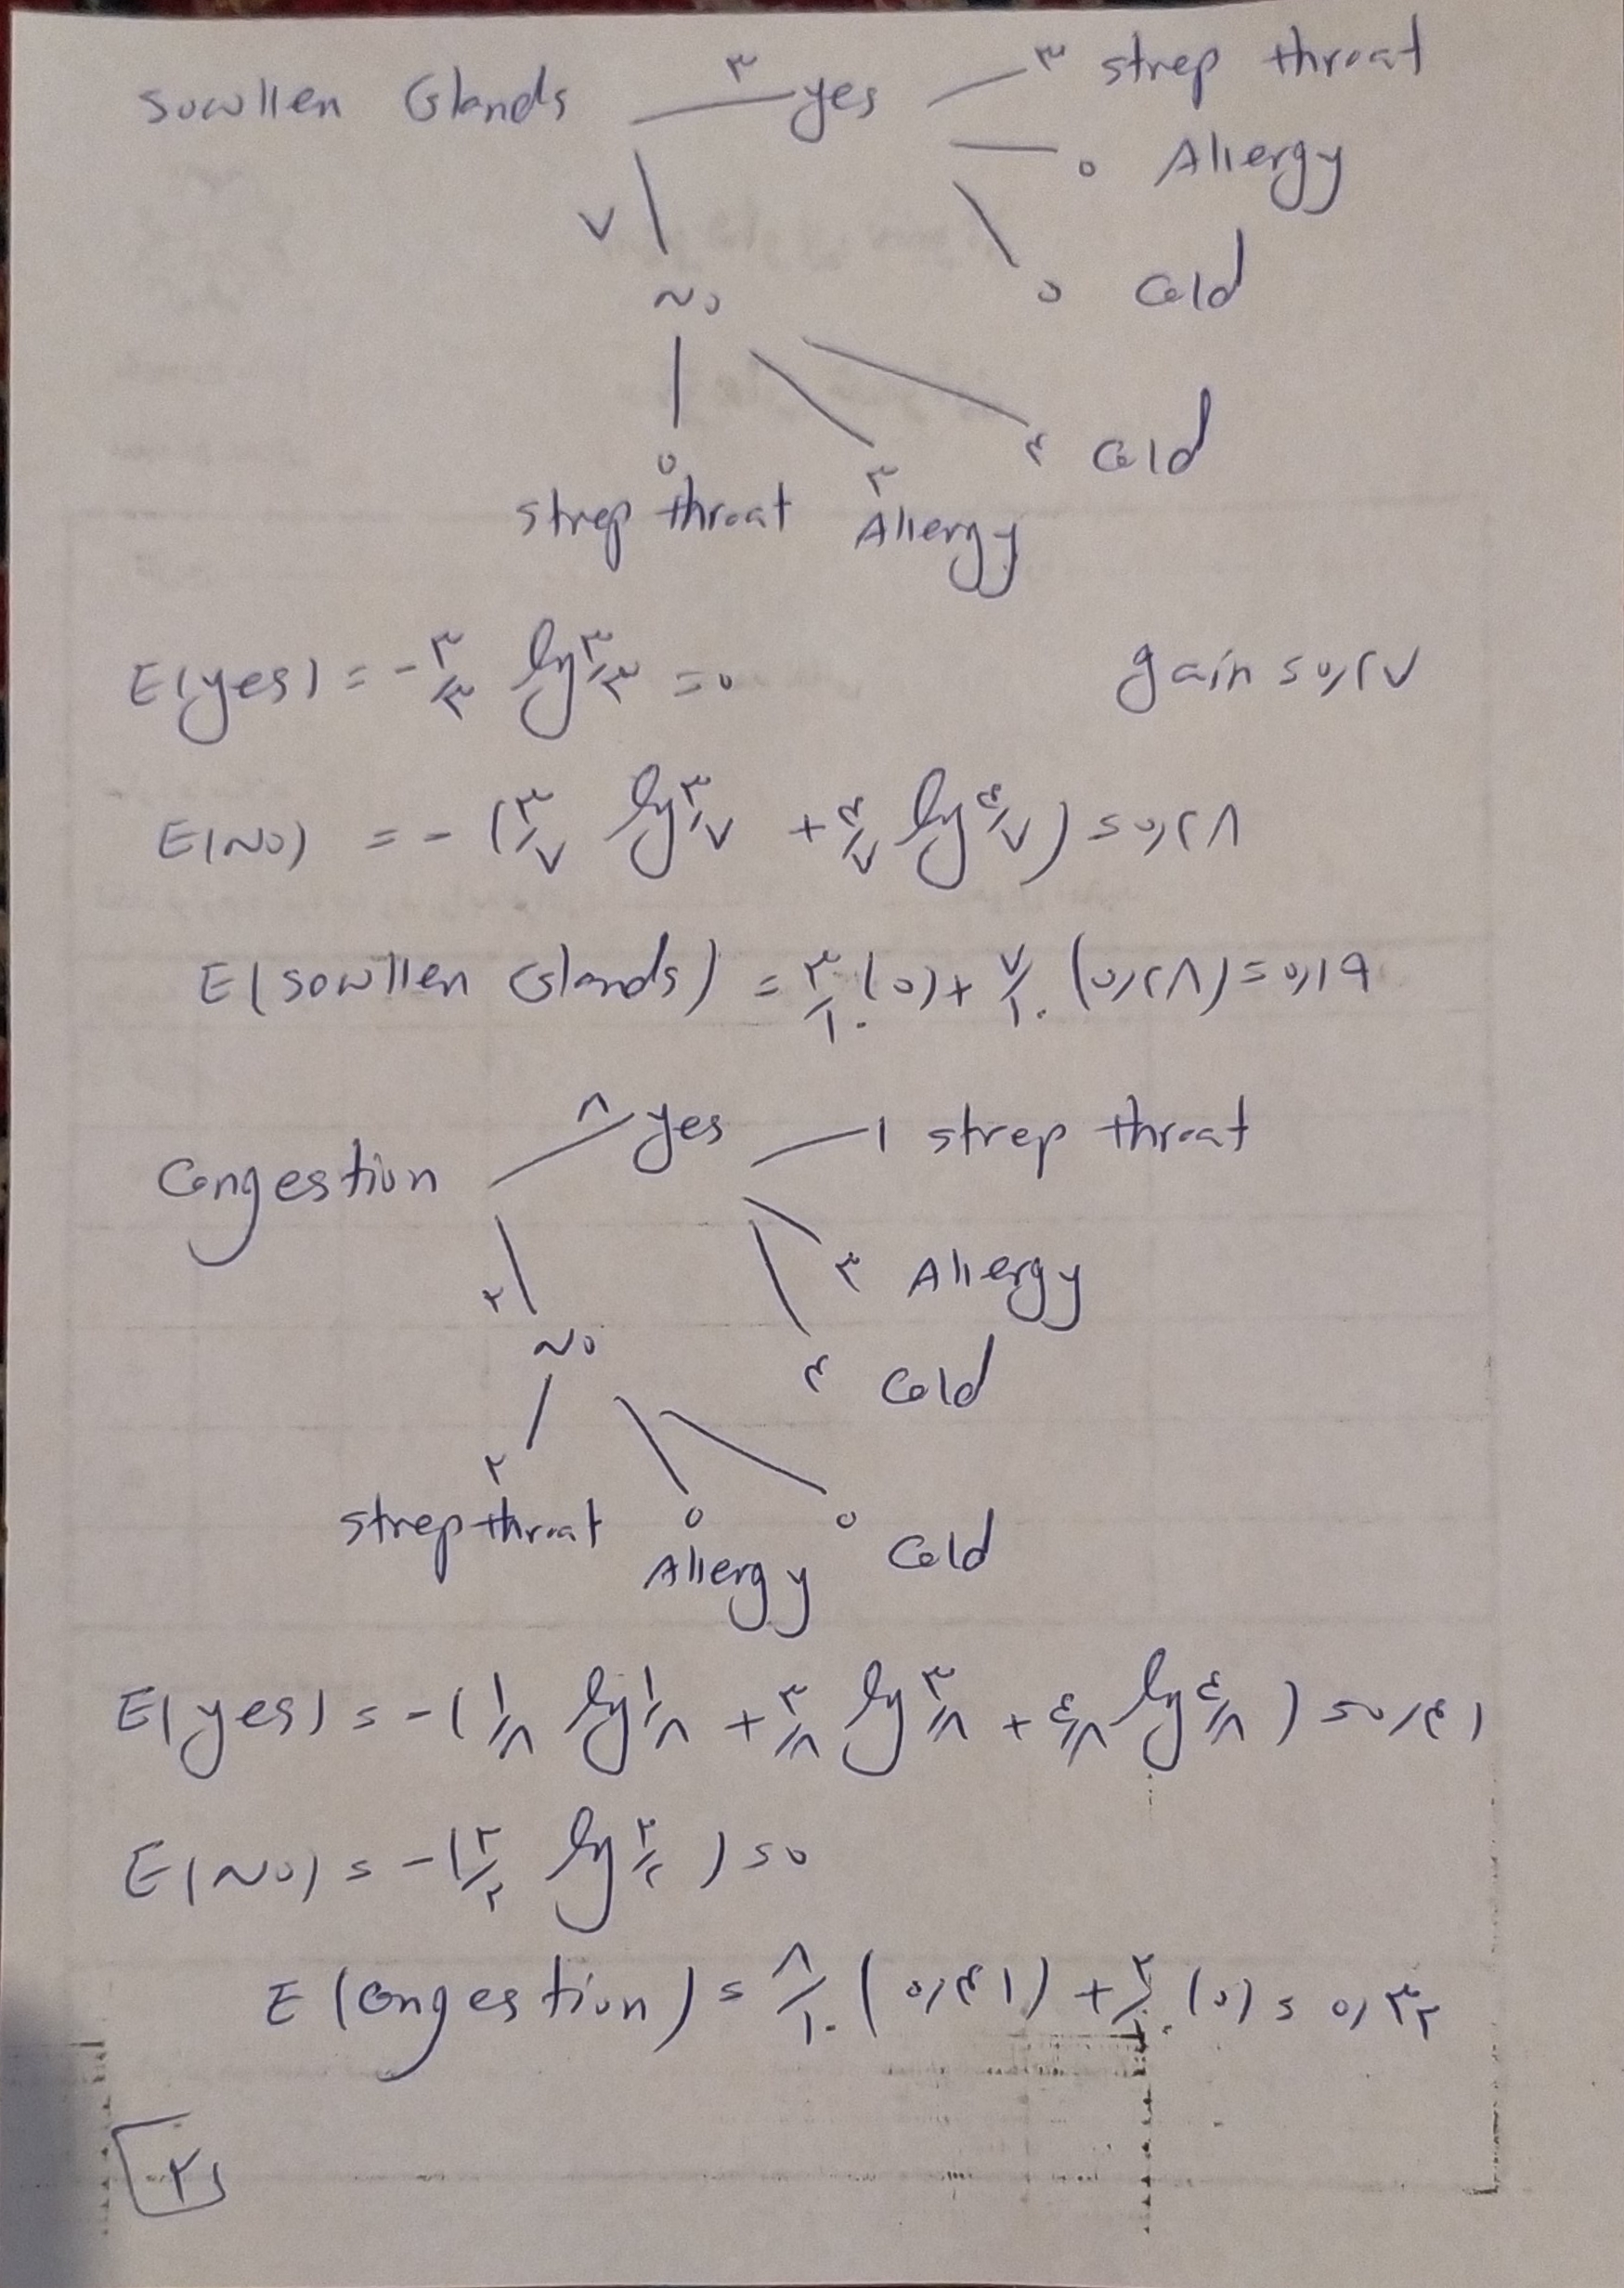 Sowllen Glands ۳ yes ۳ strep throat
۰ Allergy
۷
۰ Cold
No
۴ Cold
۰ ۳
strep throat Allergy
E(yes) = -۳/۳ log ۳/۳ = ۰ gain = ۰,۲۷
E(No) = - (۳/۷ log ۳/۷ + ۴/۷ log ۴/۷) = ۰,۲۸
E(sowllen Glands) = ۳/۱۰ (۰) + ۷/۱۰ (۰,۲۸) = ۰,۱۹
۸ yes ۱ strep throat
Congestion
۳ Allergy
۲
No
۴ Cold
۲
strep throat ۰ ۰ Cold
Allergy
E(yes) = -(۱/۸ log ۱/۸ + ۳/۸ log ۳/۸ + ۴/۸ log ۴/۸) = ۰,۴۱
E(No) = -(۲/۲ log ۲/۲) = ۰
E(Congestion) = ۸/۱۰ (۰,۴۱) + ۲/۱۰ (۰) = ۰,۳۲
۲